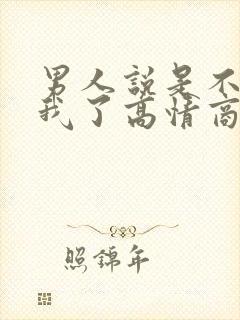 男人说是不
我了高情商
照錦年